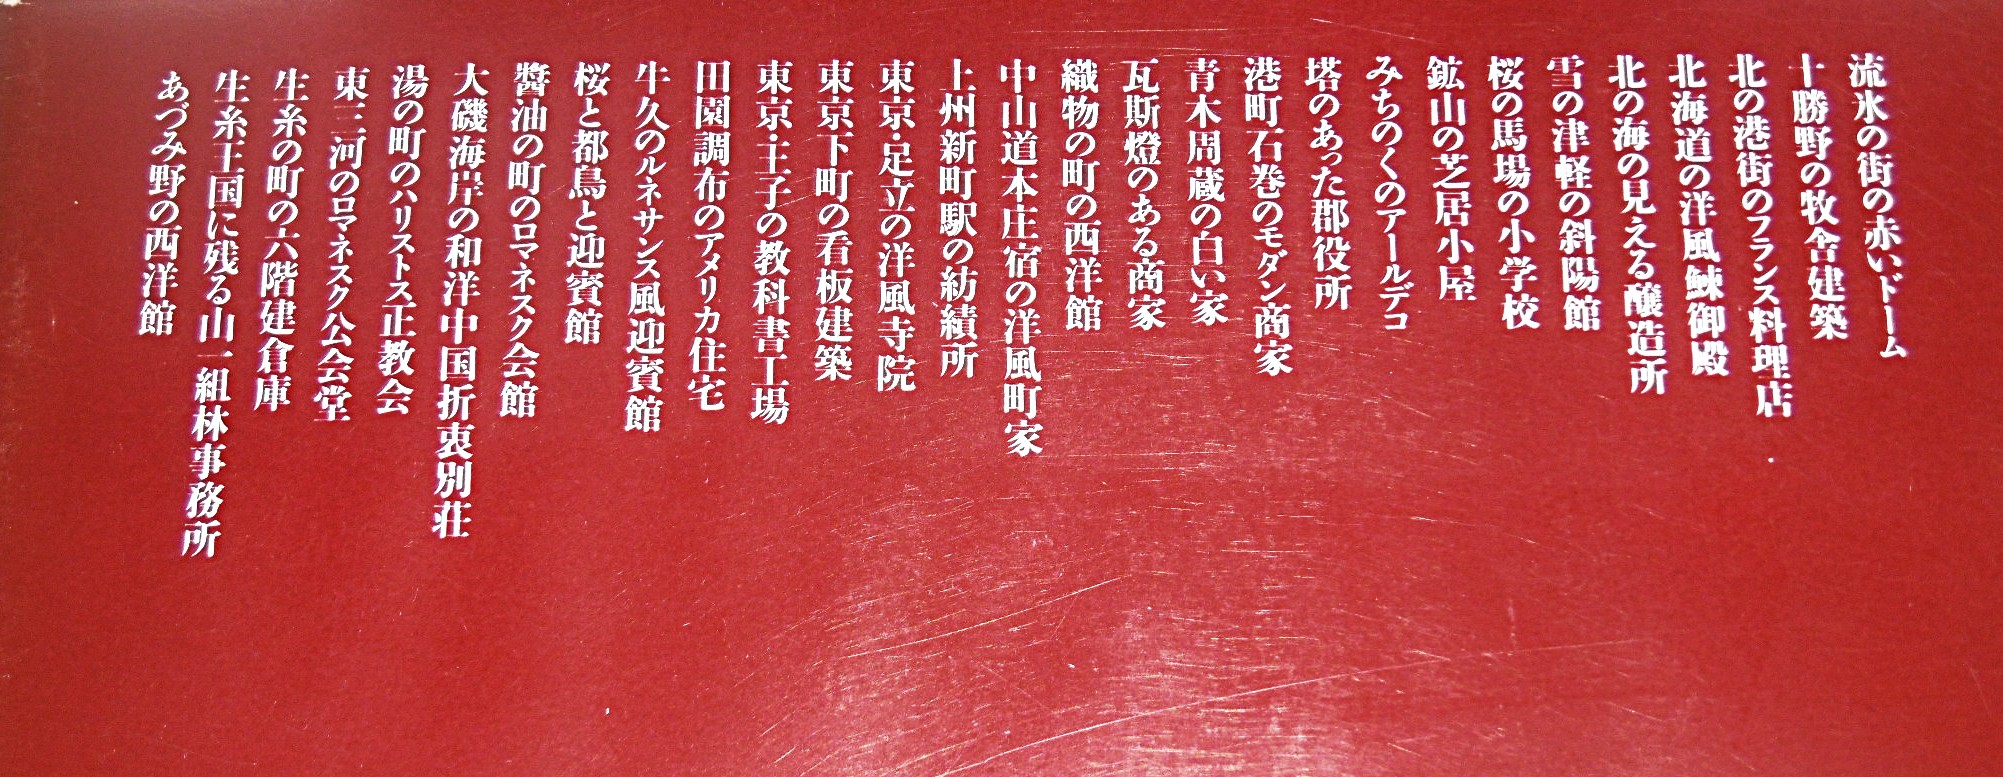 流氷の街の赤いドーム
十勝野の牧舎建築
北の港街のフランス料理店
北海道の洋風鰊御殿
北の海の見える醸造所
雪の津軽の斜陽館
桜の馬場の小学校
鉱山の芝居小屋
みちのくのアールデコ
塔のあった郡役所
港町石巻のモダン商家
青木周蔵の白い家
瓦斯燈のある商家
織物の町の西洋館
中山道本庄宿の洋風町家
上州新町駅の紡績所
東京・足立の洋風寺院
東京下町の看板建築
東京・王子の教科書工場
田園調布のアメリカ住宅
牛久のルネサンス風迎賓館
桜と都鳥と迎賓館
醬油の町のロマネスク会館
大磯海岸の和洋中国折衷別荘
湯の町のハリストス正教会
東三河のロマネスク公会堂
生糸の町の六階建倉庫
生糸王国に残る山一組林事務所
あづみ野の西洋館